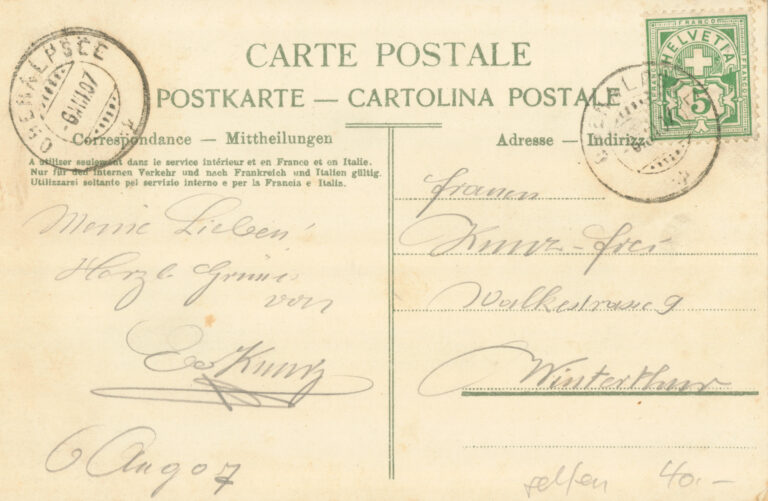 CARTE POSTALE
POSTKARTE — CARTOLINA POSTALE
Correspondance — Mittheilungen
A utiliser seulement dans le service intérieur et en France et en Italie.
Nur für den internen Verkehr und nach Frankreich und Italien gültig.
Utilizzarsi soltanto pel servizio interno e per la Francia e Italia.
OBERALPSEE
-6.VIII.07
Meine Lieben!
Herzl. Grüsse
von
Kunz
6 Aug 07
Adresse — Indirizzo
FRANCO
HELVETIA
FRANCO
FRANCO
5
OBERALP
Frauen
Kunz-Frei
Walkestrasse 9
Winterthur
selten 40.-